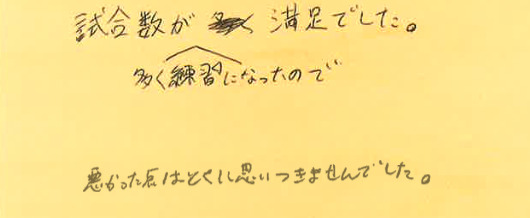 試合数が 満足でした。
多く練習になったので
悪かった点はとくに思いつきませんでした。